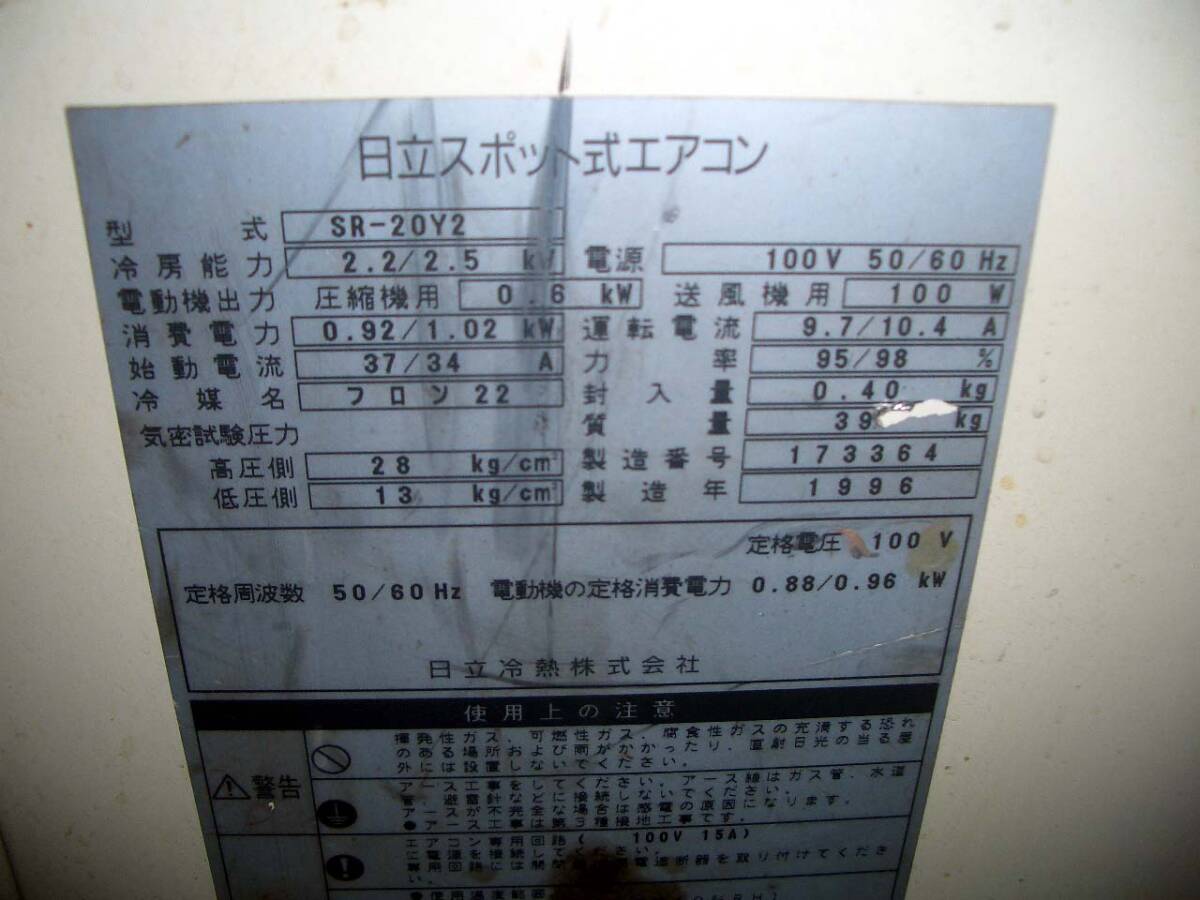 日立スポット式エアコン
型式 SR-20Y2
冷房能力 2.2/2.5 kW 電源 100V 50/60 Hz
電動機出力 圧縮機用 0.6 kW 送風機用 100 W
消費電力 0.92/1.02 kW 運転電流 9.7/10.4 A
始動電流 37/34 A 力率 95/98 %
冷媒名 フロン22 封入量 0.40 kg
気密試験圧力 質量 39 kg
高圧側 28 kg/cm² 製造番号 173364
低圧側 13 kg/cm² 製造年 1996
定格電圧 100 V
定格周波数 50/60 Hz 電動機の定格消費電力 0.88/0.96 kW
日立冷熱株式会社
使用上の注意
警告
揮発性ガス、可燃性ガス、腐食性ガスの充満する恐れ
のある場所および雨がかかったり、直射日光の当る屋
外には設置しないでください。
アース工事をしてください。アース線はガス管、水道
管、避雷針などに接続しないでください。
アースが不完全な場合は感電の原因になります。
●アース工事は第3種接地工事です。
エアコン専用回路( 100V 15A)
に電源を接続してください。
専用回路には開閉 電遮断器を取り付けてくださ
い。
●使用温度範囲